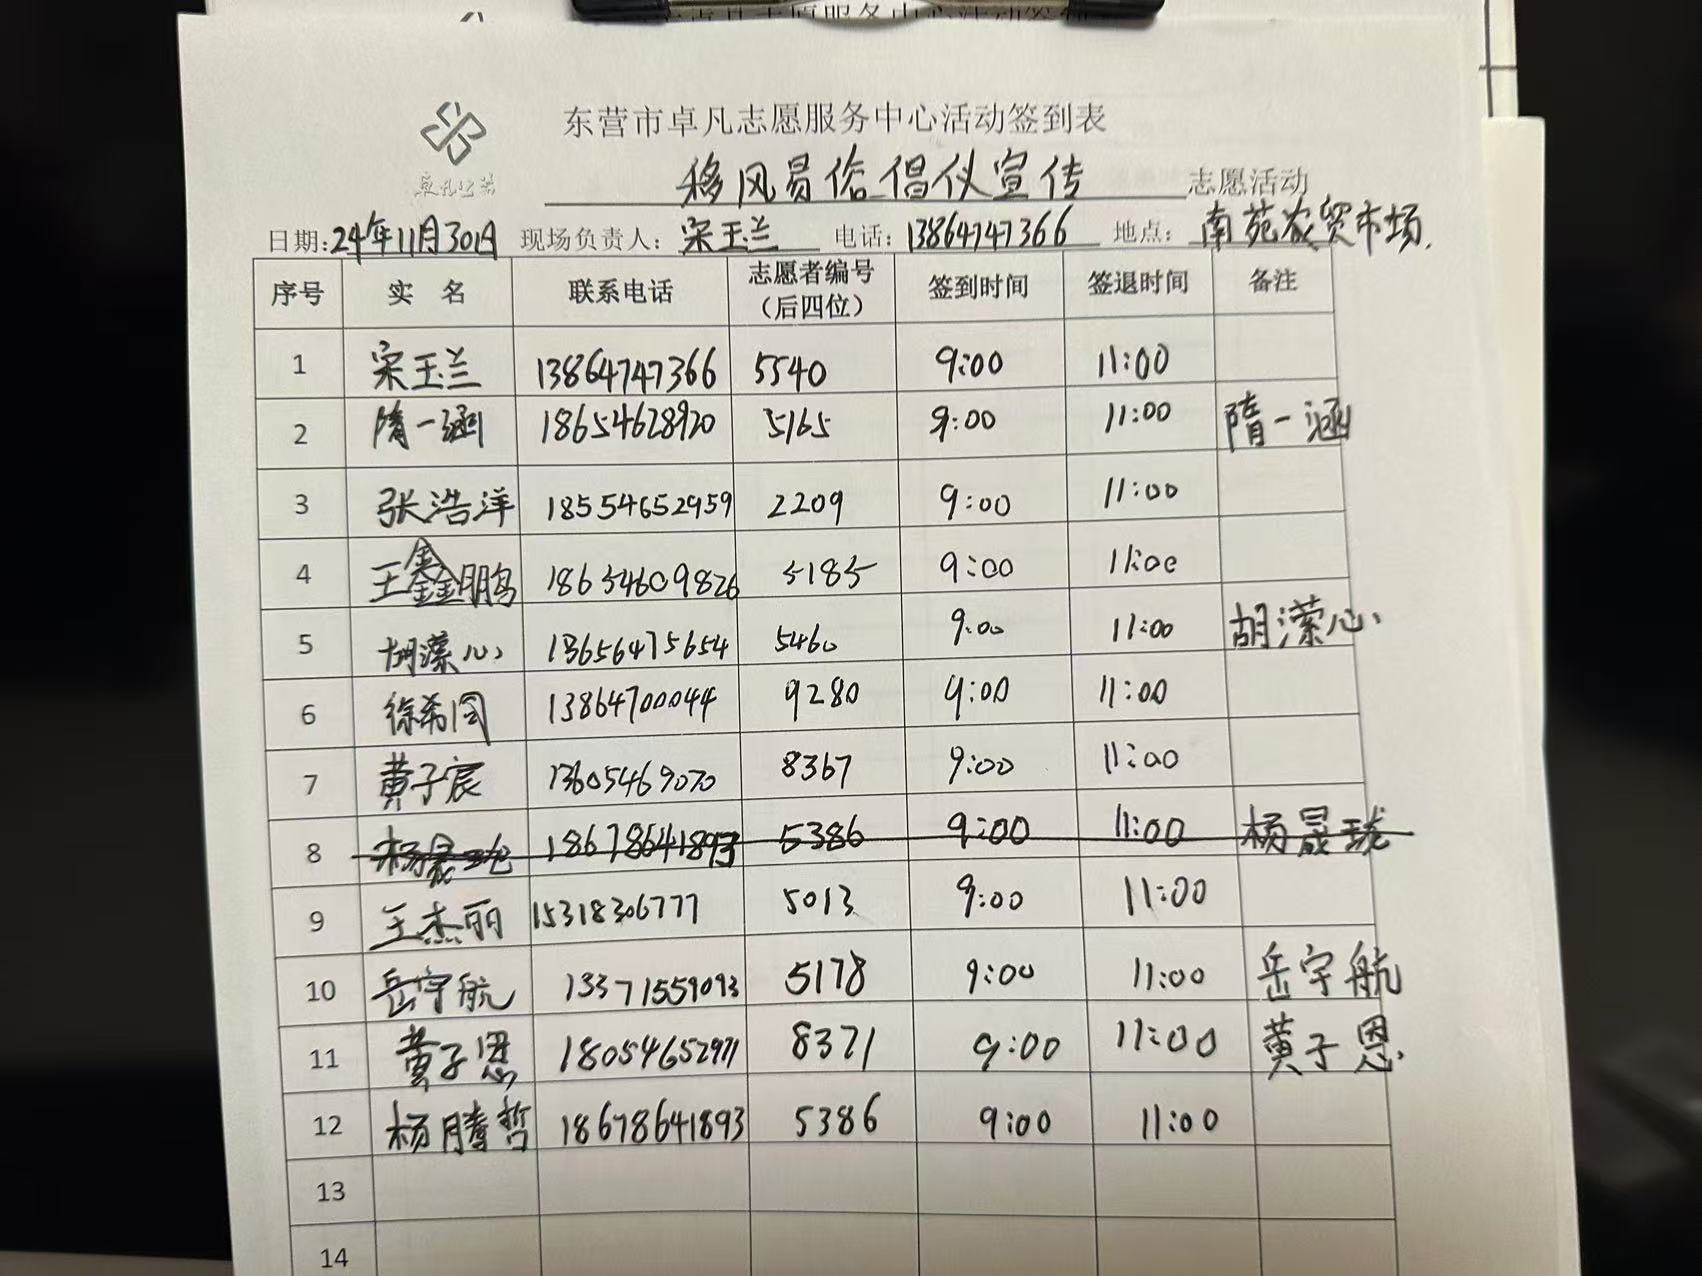 东营市卓凡志愿服务中心活动签到表
移风易俗倡仪宣传 志愿活动
日期:24年11月30日 现场负责人:宋玉兰 电话:13864747366 地点:南苑农贸市场.
序号 实 名 联系电话 志愿者编号(后四位) 签到时间 签退时间 备注
1 宋玉兰 13864747366 5540 9:00 11:00
2 隋一涵 18654628920 5165 9:00 11:00 隋一涵
3 张浩洋 18554652959 2209 9:00 11:00
4 王鑫鹏 18654609826 5185 9:00 11:00
5 胡潆心 13656475654 5460 9:00 11:00 胡潆心
6 徐希 13864700044 9280 9:00 11:00
7 黄子宸 13605469070 8367 9:00 11:00
8 杨晟珑 18678641893 5386 9:00 11:00 杨晟珑
9 王杰丽 15318306777 5013 9:00 11:00
10 岳宇航 13371559093 5178 9:00 11:00 岳宇航
11 黄子恩 18054652971 8371 9:00 11:00 黄子恩
12 杨腾哲 18678641893 5386 9:00 11:00
13
14